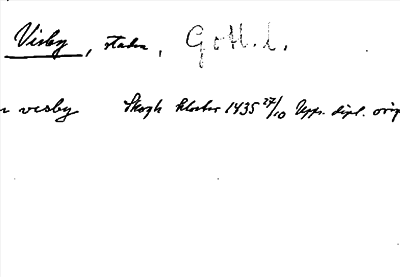 Visby, staden, Gotl. l.
n visby Skogh kloster 1435 27/10 Upps. dipl. orig